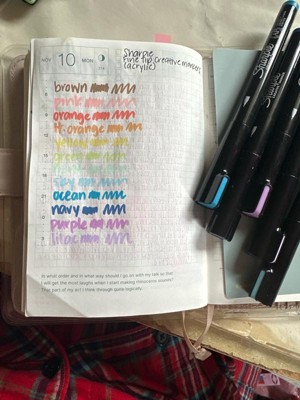 NOV 10 MON.
Sharpie
Fine tip Creative markers
(acrylic)
brown
pink
orange
lt. orange
yellow
green
sky
ocean
navy
purple
lilac
In what order and in what way should I go with my talk so that
I will get the most laughs when I start making impressive sounds?
That part of my act I think through quite logically.
Sharpie
Sharpie